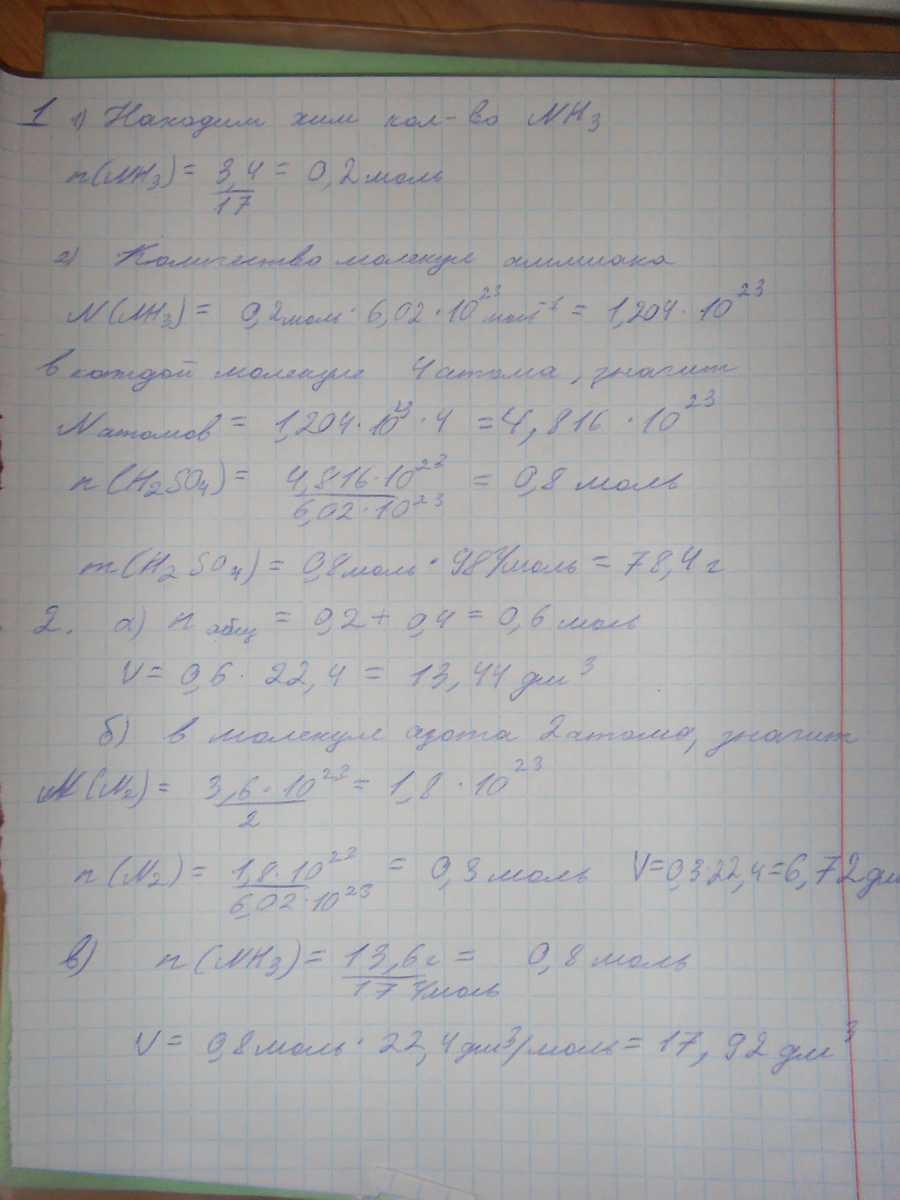 1 1) Находим хим кол-во NH3
n(NH3) = 3,4/17 = 0,2 моль
2) Количество молекул аммиака
N(NH3) = 0,2моль · 6,02 · 10^23 моль^-1 = 1,204 · 10^23
в каждой молекуле 4 атома, значит
Nатомов = 1,204 · 10^23 · 4 = 4,816 · 10^23
n(H2SO4) = 4,816 · 10^23/6,02 · 10^23 = 0,8 моль
m(H2SO4) = 0,8моль · 98 г/моль = 78,4 г
2. а) n общ = 0,2 + 0,4 = 0,6 моль
V = 0,6 · 22,4 = 13,44 дм^3
б) в молекуле азота 2 атома, значит
N(N2) = 3,6 · 10^23/2 = 1,8 · 10^23
n(N2) = 1,8 · 10^23/6,02 · 10^23 = 0,3 моль V=0,3·22,4=6,72 дм
в) n(NH3) = 13,6г/17 г/моль = 0,8 моль
V = 0,8 моль · 22,4 дм^3/моль = 17,92 дм^3